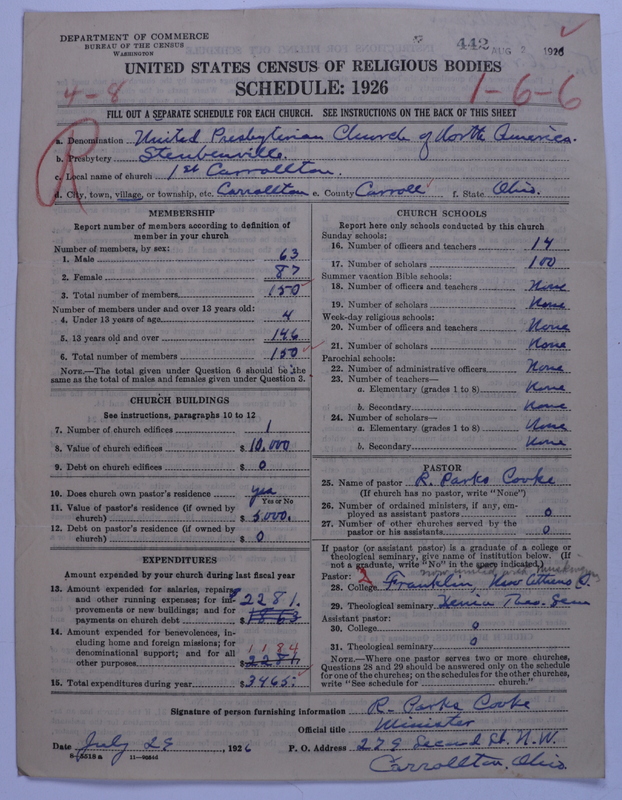 DEPARTMENT OF COMMERCE
BUREAU OF THE CENSUS
WASHINGTON
442 AUG 1926
UNITED STATES CENSUS OF RELIGIOUS BODIES
SCHEDULE: 1926
4-8
1-6-6
FILL OUT A SEPARATE SCHEDULE FOR EACH CHURCH. SEE INSTRUCTIONS ON THE BACK OF THIS SHEET
a. Denomination United Presbyterian Church of North America.
b. Presbytery Steubenville.
c. Local name of church 1st Carrollton.
d. City, town, village, or township, etc. Carrollton e. County Carroll f. State Ohio.
MEMBERSHIP
Report number of members according to definition of member in your church
Number of members, by sex:
1. Male 63
2. Female 87
3. Total number of members 150
Number of members under and over 13 years old:
4. Under 13 years of age 4
5. 13 years old and over 146
6. Total number of members 150
NOTE.—The total given under Question 6 should be the
same as the total of males and females given under Question 3.
CHURCH BUILDINGS
See instructions, paragraphs 10 to 12
7. Number of church edifices 1
8. Value of church edifices $ 10,000
9. Debt on church edifices $ 0
10. Does church own pastor's residence yes
Yes or No
11. Value of pastor's residence (if owned by
church) $ 5,000.
12. Debt on pastor's residence (if owned by
church) $ 0
EXPENDITURES
Amount expended by your church during last fiscal year
13. Amount expended for salaries, repairs,
and other running expenses; for im-
provements or new buildings; and for
payments on church debt $ 2281.
14. Amount expended for benevolences, in-
cluding home and foreign missions; for
denominational support; and for all
other purposes $ 1184 2281.
15. Total expenditures during year $ 3465.
CHURCH SCHOOLS
Report here only schools conducted by this church
Sunday schools:
16. Number of officers and teachers 14
17. Number of scholars 100
Summer vacation Bible schools:
18. Number of officers and teachers None
19. Number of scholars None
Week-day religious schools:
20. Number of officers and teachers None
21. Number of scholars None
Parochial schools:
22. Number of administrative officers None
23. Number of teachers—
a. Elementary (grades 1 to 8) None
b. Secondary None
24. Number of scholars—
a. Elementary (grades 1 to 8) None
b. Secondary None
PASTOR
25. Name of pastor R. Parks Cooke
(If church has no pastor, write "None")
26. Number of ordained ministers, if any, em-
ployed as assistant pastors 0
27. Number of other churches served by the
pastor or his assistants 0
If pastor (or assistant pastor) is a graduate of a college or
theological seminary, give name of institution below. (If
not a graduate, write "No" in the space indicated.)
Pastor: now united with Muskingum
28. College Franklin, New Athens O.
29. Theological seminary Xenia Theo. Sem
Assistant pastor:
30. College 0
31. Theological seminary 0
NOTE.—Where one pastor serves two or more churches,
Questions 28 and 29 should be answered only on the schedule
for one of the churches; on the schedules for the other churches,
write "See schedule for church."
Signature of person furnishing information R. Parks Cooke
Official title Minister
Date July 29, 1926 P. O. Address 279 Second St. N.W.
Carrollton, Ohio.
8—5518 a